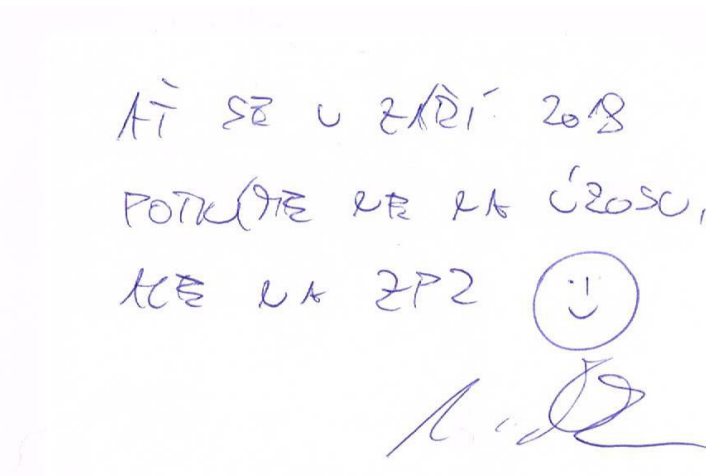 AŤ SE V ZÁŘÍ 2018
POTKÁTE NE NA ÚZOSU,
ALE NA ZPZ